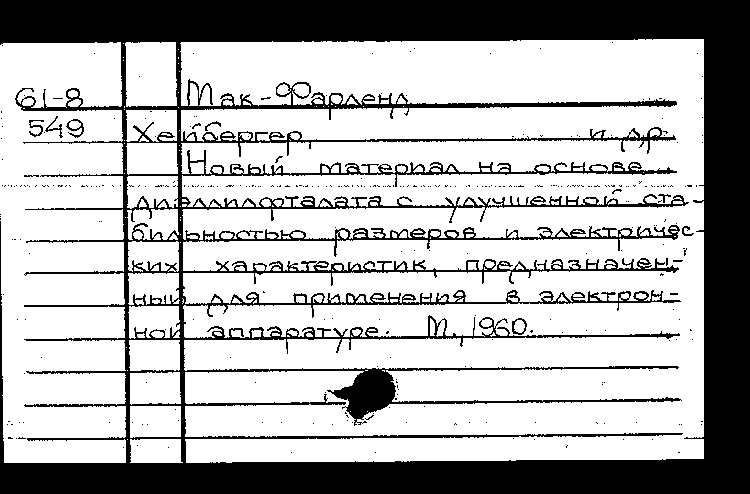 61-8 Мак-Фарленд
549 Хейбергер, и др.
Новый материал на основе
диаллилфталата с улучшенной ста-
бильностью размеров и электричес-
ких характеристик, предназначен-
ный для применения в электрон-
ной аппаратуре. М., 1960.